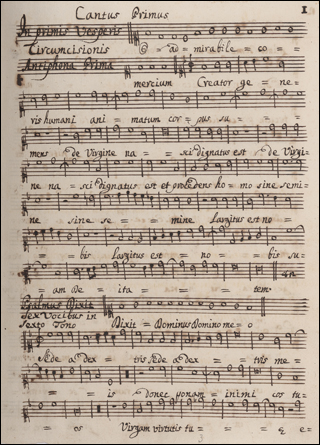 Cantus Primus
1
In primis Vesperis
Circumcisionis
O ad = mirabile = co =
Antiphona Prima
mercium Creator ge = ne =
ris humani ani = matum cor = pus su = =
mens de Virgine na = = sci dignatus est de Virgi =
ne na = sci dignatus est et procedens ho = mo sine semi =
ne sine se = = mine Largitus est no =
= bis Largitus est = no = = bis su =
= am De = ita = = tem
Psalmus Dixit
sex Vocibus in
sexto Tono
Dixit = Dominus Domino me = o
sede a dex = tris sede a dex = = tris me =
= = is = donec ponam = inimi cos tu =
= os Virgam virtutis tu = = ę e =